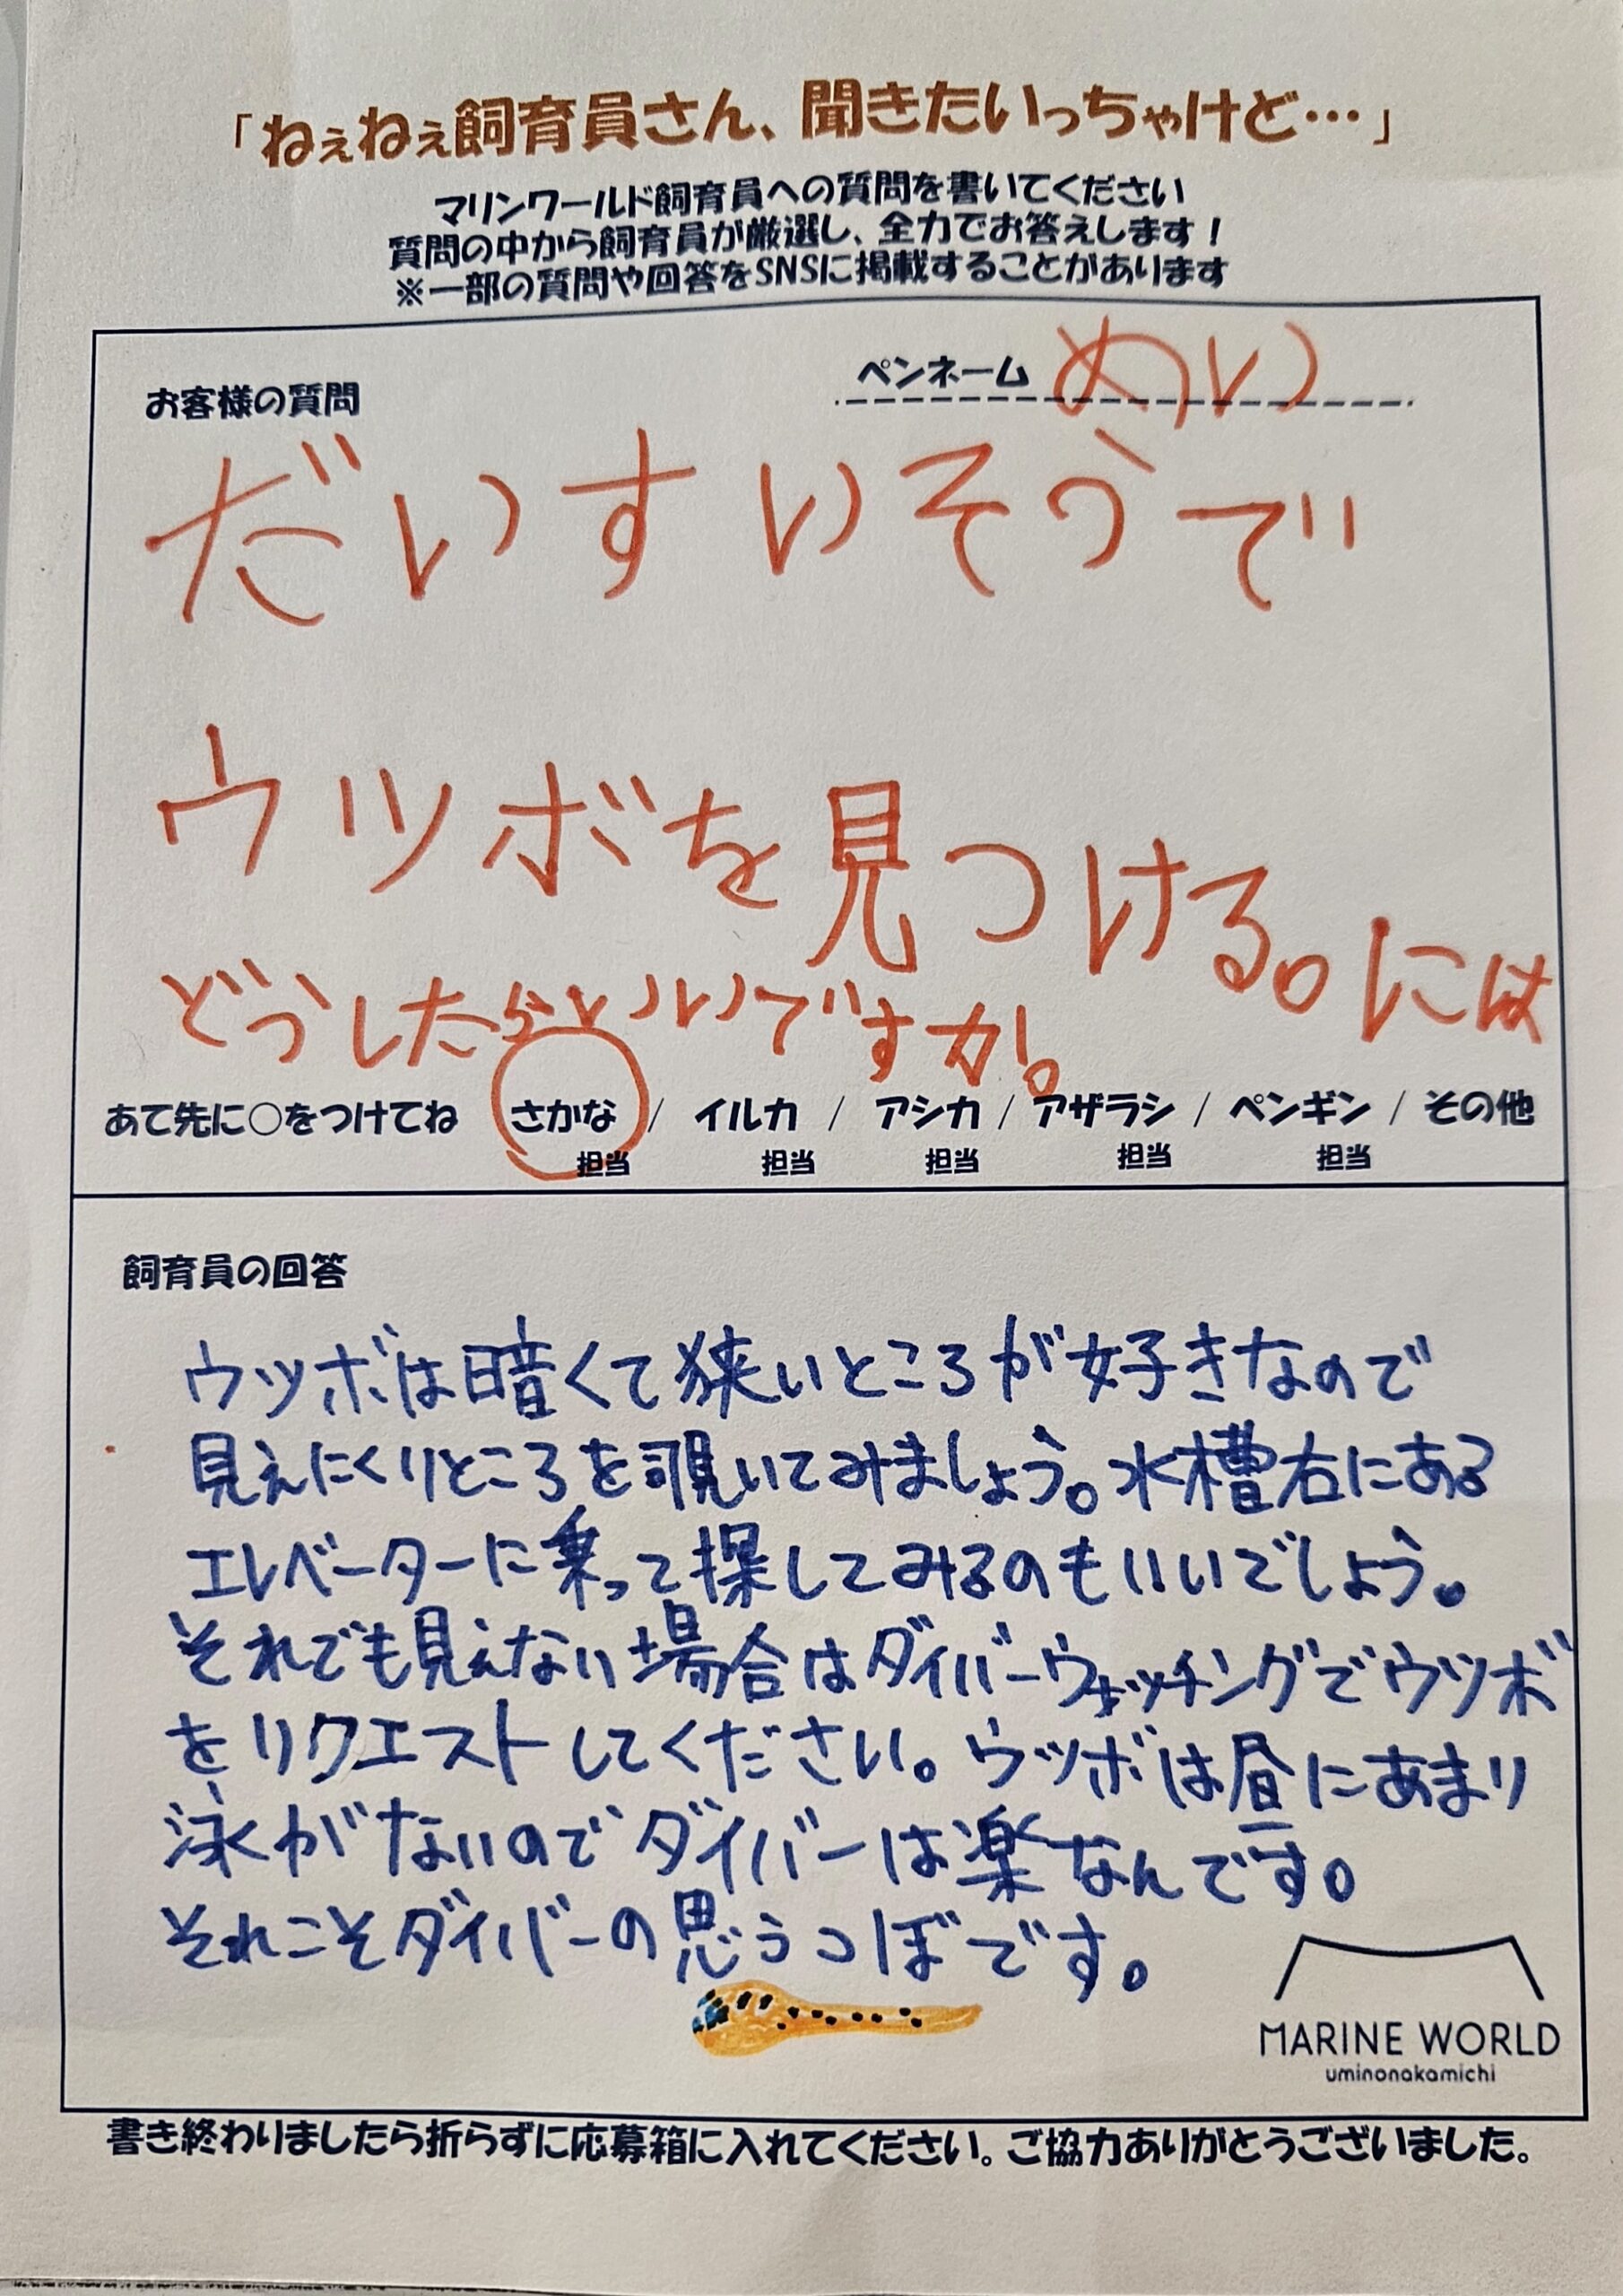 「ねぇねぇ飼育員さん、聞きたいっちゃけど…」
マリンワールド飼育員への質問を書いてください
質問の中から飼育員が厳選し、全力でお答えします！
※一部の質問や回答をSNSに掲載することがあります
お客様の質問
ペンネーム めい
だいすいそうで
ウツボを見つける。には
どうしたらいいですか。
あて先に○をつけてね さかな担当 / イルカ担当 / アシカ担当 / アザラシ担当 / ペンギン担当 / その他
飼育員の回答
ウツボは暗くて狭いところが好きなので
見えにくいところを覗いてみましょう。水槽右にある
エレベーターに乗って探してみるのもいいでしょう。
それでも見えない場合はダイバーウォッチングでウツボ
をリクエストしてください。ウツボは昼にあまり
泳がないのでダイバーは楽なんです。
それこそダイバーの思うつぼです。
MARINE WORLD
uminonakamichi
書き終わりましたら折らずに応募箱に入れてください。ご協力ありがとうございました。